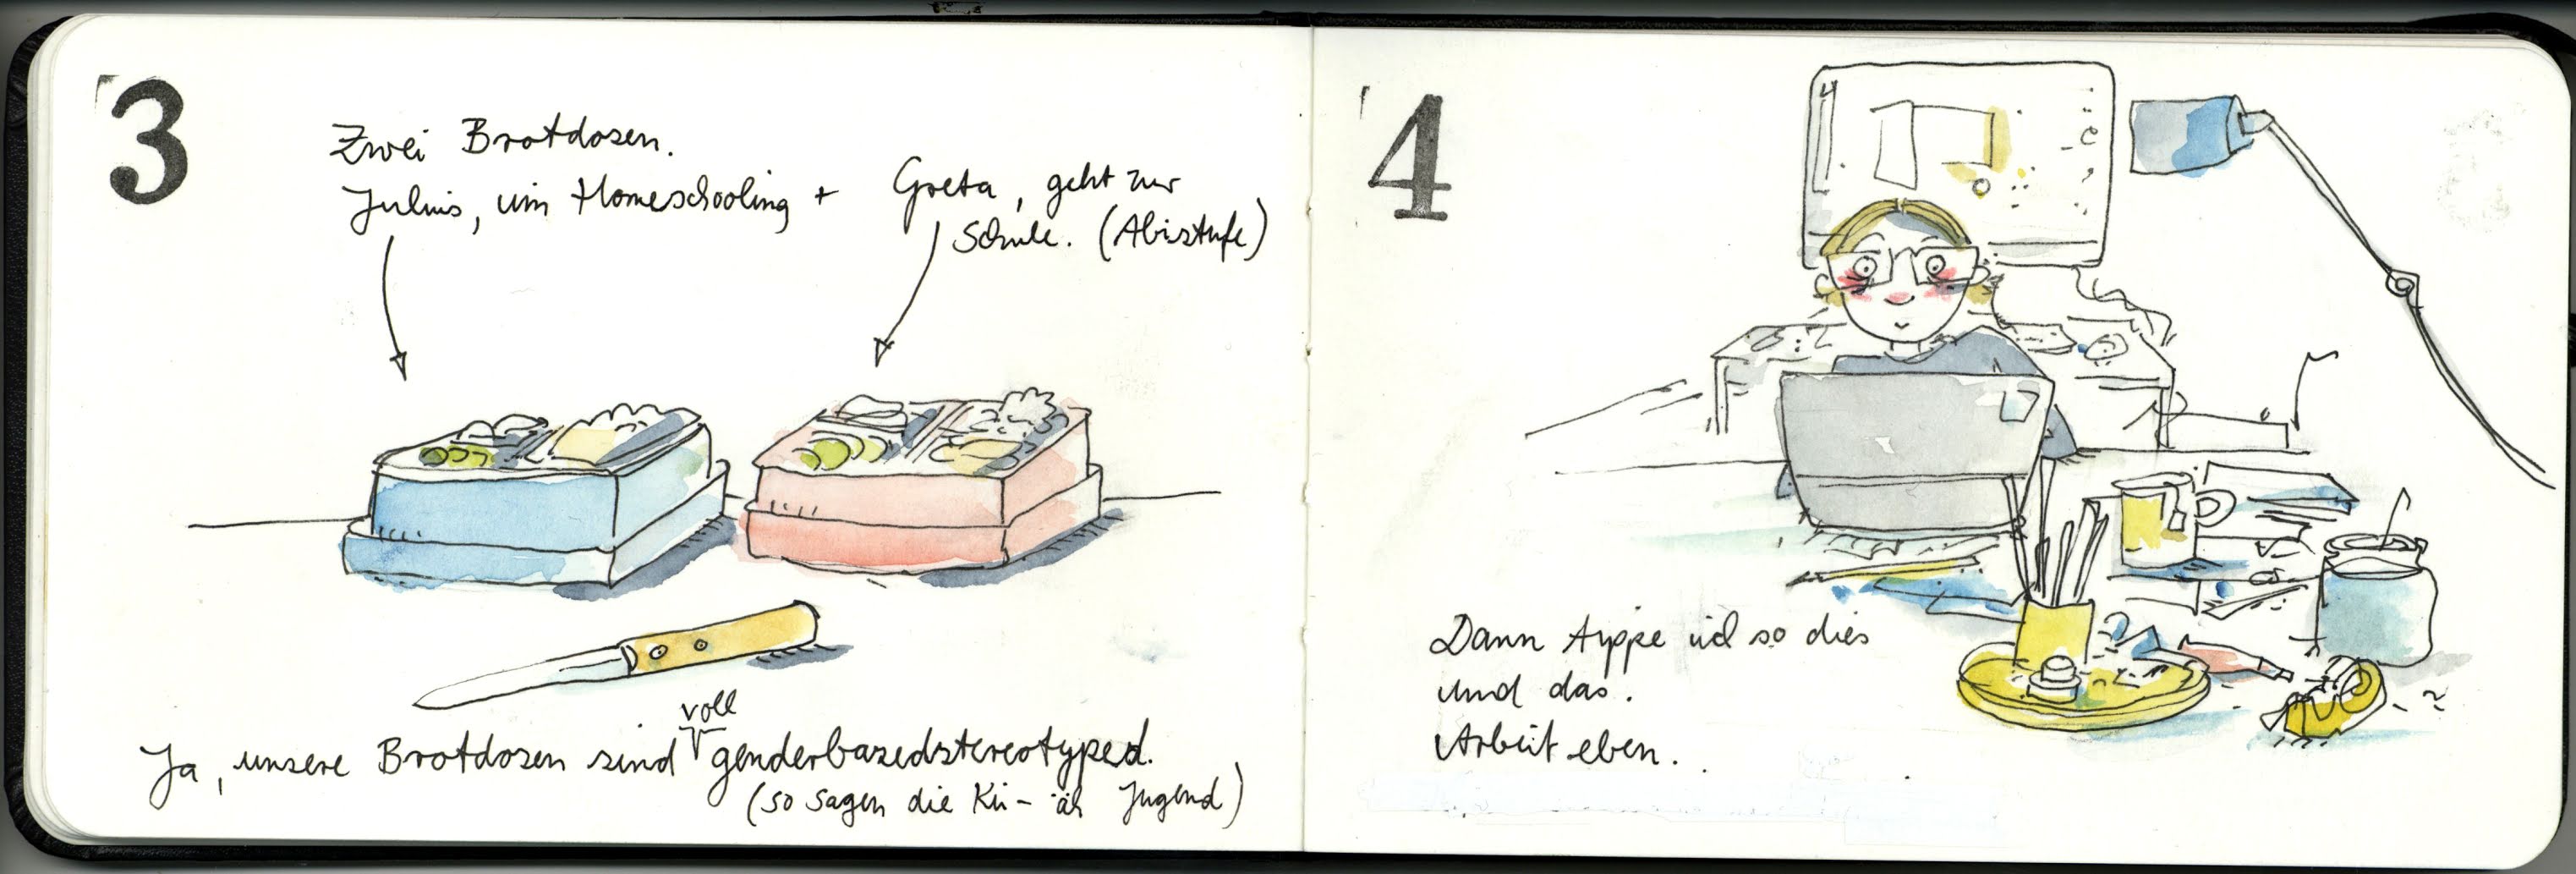 3
Zwei Brotdosen.
Julius, im Homeschooling +
Greta, geht zur
Schule. (Abistufe)
Ja, unsere Brotdosen sind voll genderbasedstereotyped.
(so sagen die Ki- äh Jugend)
4
Dann tippe ich so dies
und das.
Arbeit eben.